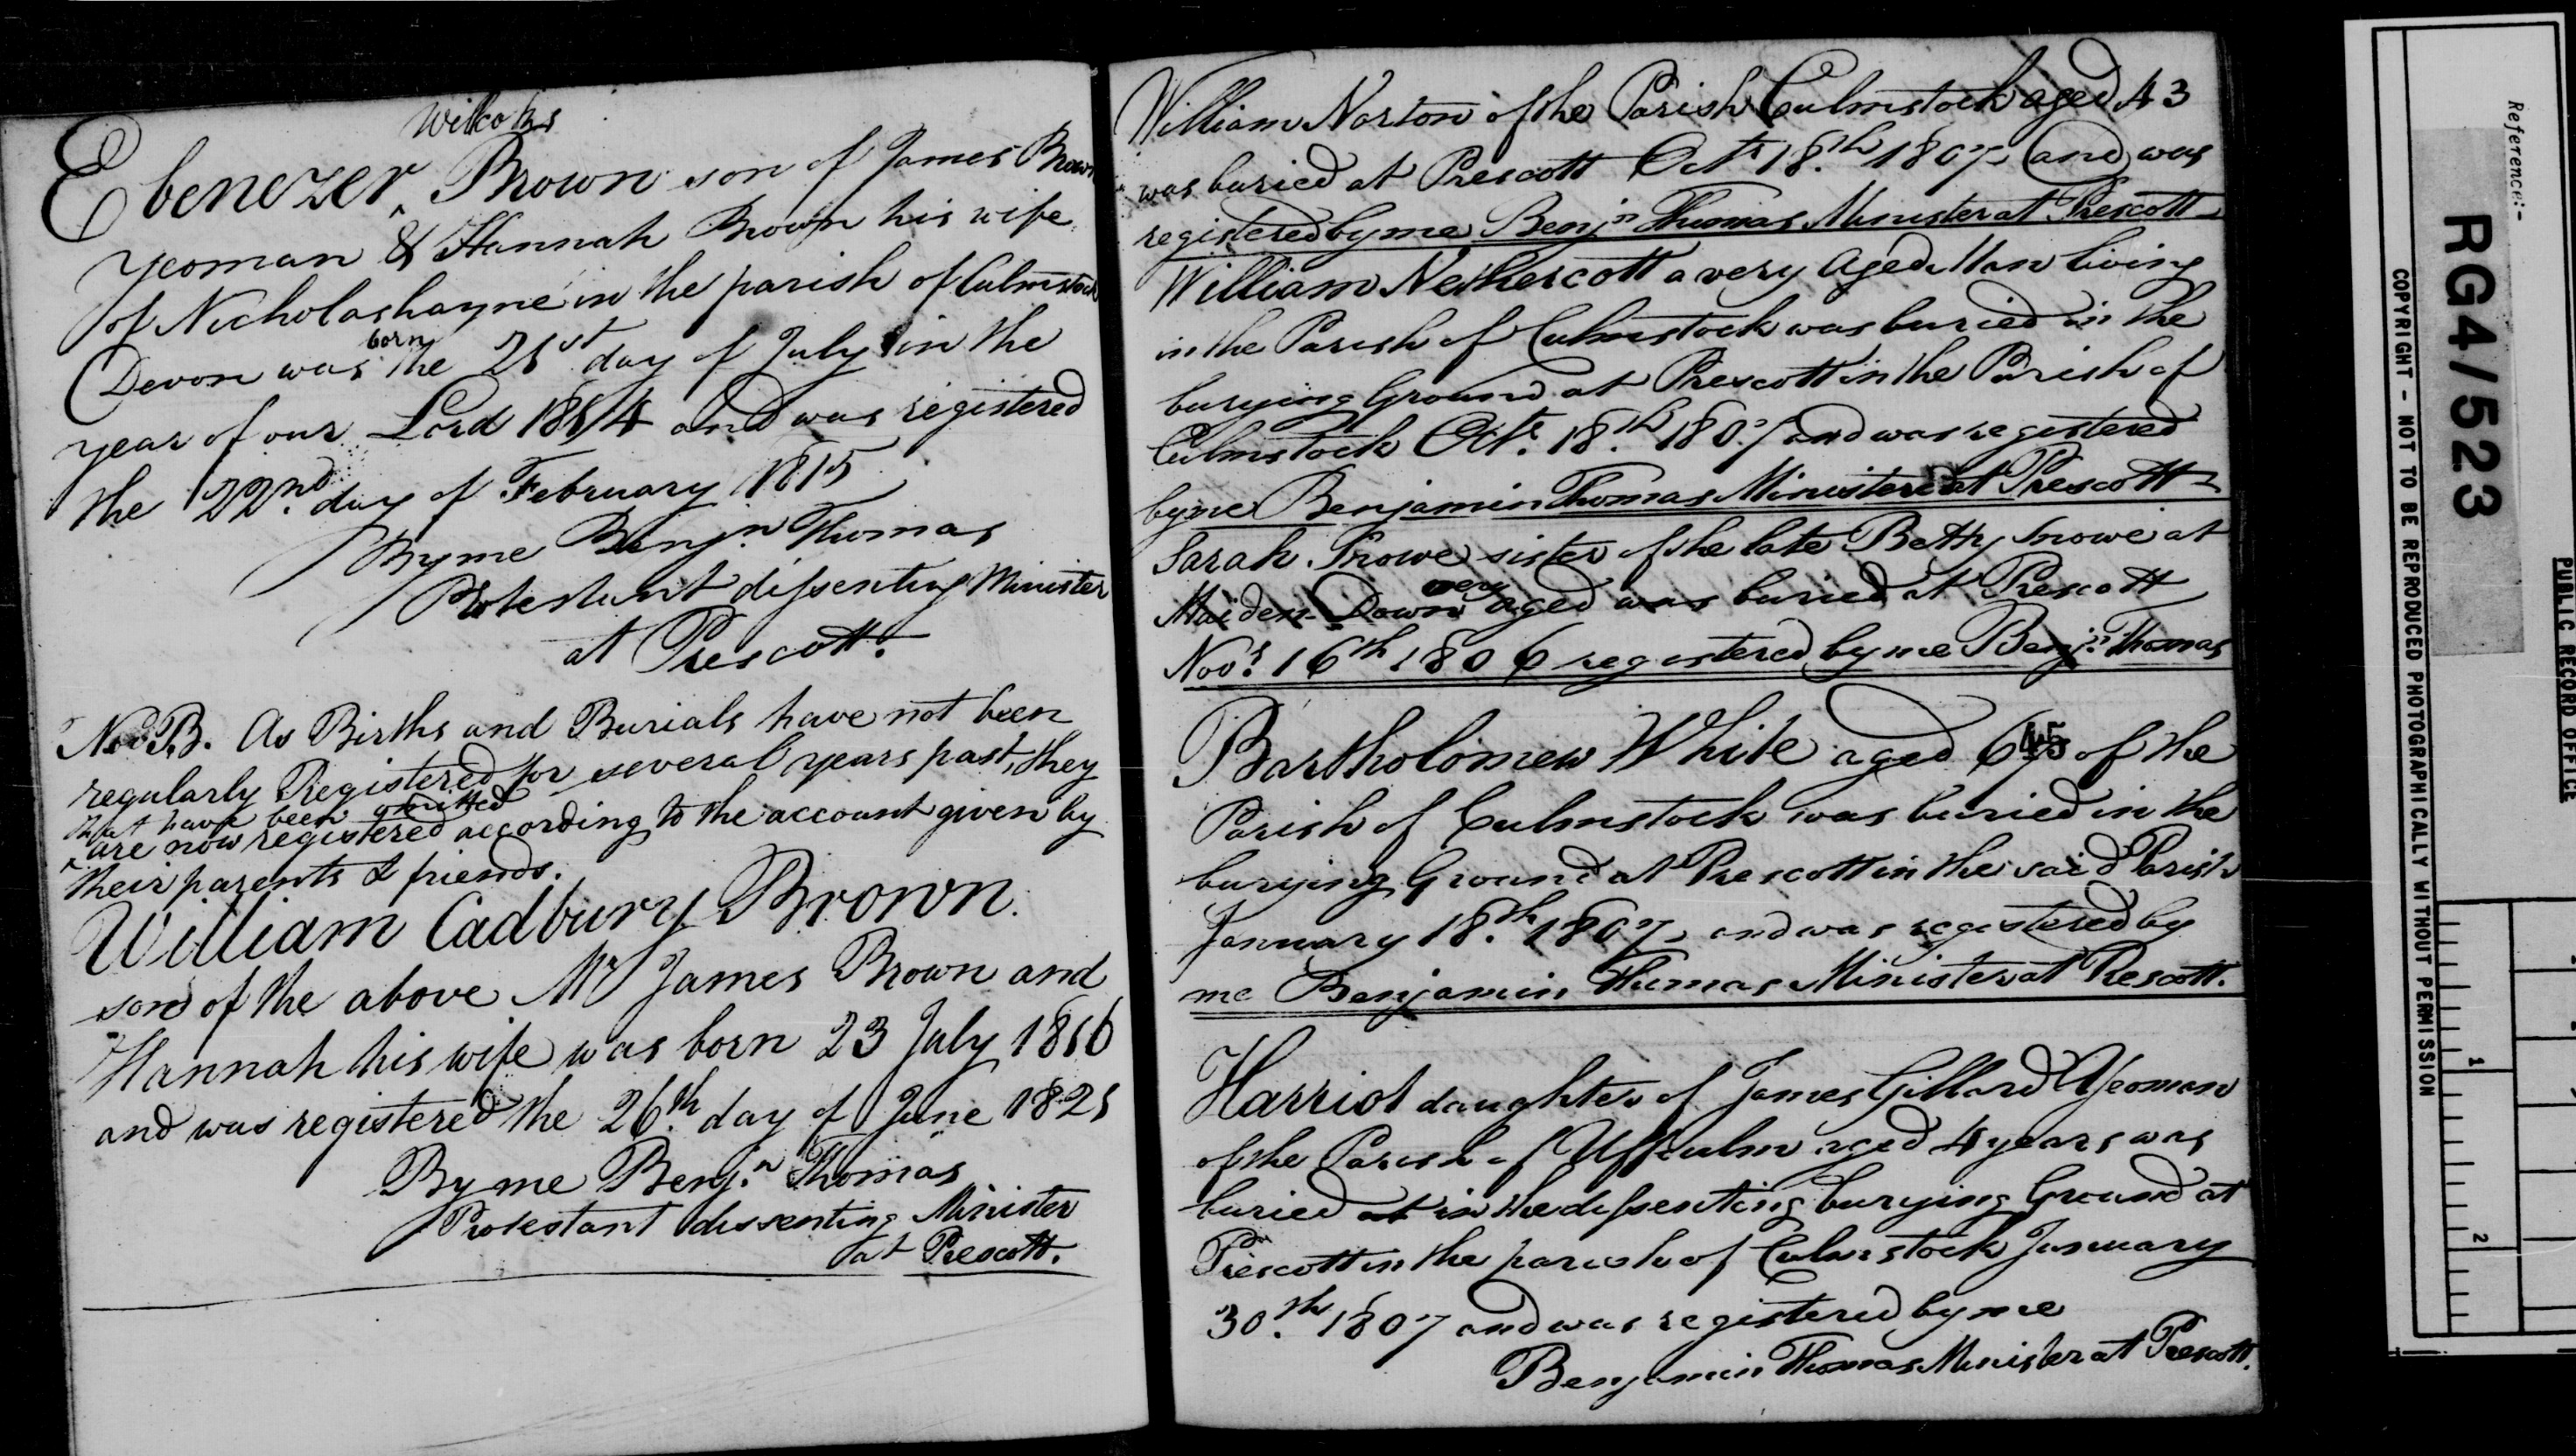 Wilcoks
Ebenezer ^ Brown son of James Brown
yeoman & Hannah Brown his wife
of Nicholashayne in the parish of Culmstock
born
Devon was the 21st day of July in the
year of our Lord 1814 and was registered
the 22nd day of February 1815
By me Benjn Thomas
Protestant dissenting Minister
at Prescott.
N.B. As Births and Burials have not been
regularly Registered for several years past, they
that have been omitted
^ are now registered according to the account given by
their parents & friends.
William Cadbury Brown
son of the above Mr James Brown and
Hannah his wife was born 23 July 1816
and was registered the 26th day of June 1821
By me Benjn Thomas
Protestant dissenting Minister
at Prescott.
William Norton of the Parish Culmstock aged 43
was buried at Prescott Octr 18th 1807 and was
registered by me Benjn Thomas Minister at Prescott
William Nethercott a very aged Man living
in the Parish of Culmstock was buried in the
burying Ground at Prescott in the Parish of
Culmstock Octr 18th 1807 and was registered
by me Benjamin Thomas Minister at Prescott
Sarah Snowe sister of the late Betty Snowe at
very
Maiden Down aged was buried at Prescott
Novr 16th 1806 registered by me Benjn Thomas
Bartholomew White aged of the
Parish of Culmstock was buried in the
burying Ground at Prescott in the said Parish
January 18th 1807 and was registered by
me Benjamin Thomas Minister at Prescott.
Harriot daughter of James Gillard Yeoman
of the Parish of Uffculm aged 4 years was
buried at in the dissenting burying Ground at
Prescott in the parish of Culmstock January
30th 1807 and was registered by me
Benjamin Thomas Minister at Prescott.
Reference:-
RG4/523
PUBLIC RECORD OFFICE
COPYRIGHT - NOT TO BE REPRODUCED PHOTOGRAPHICALLY WITHOUT PERMISSION
1
2